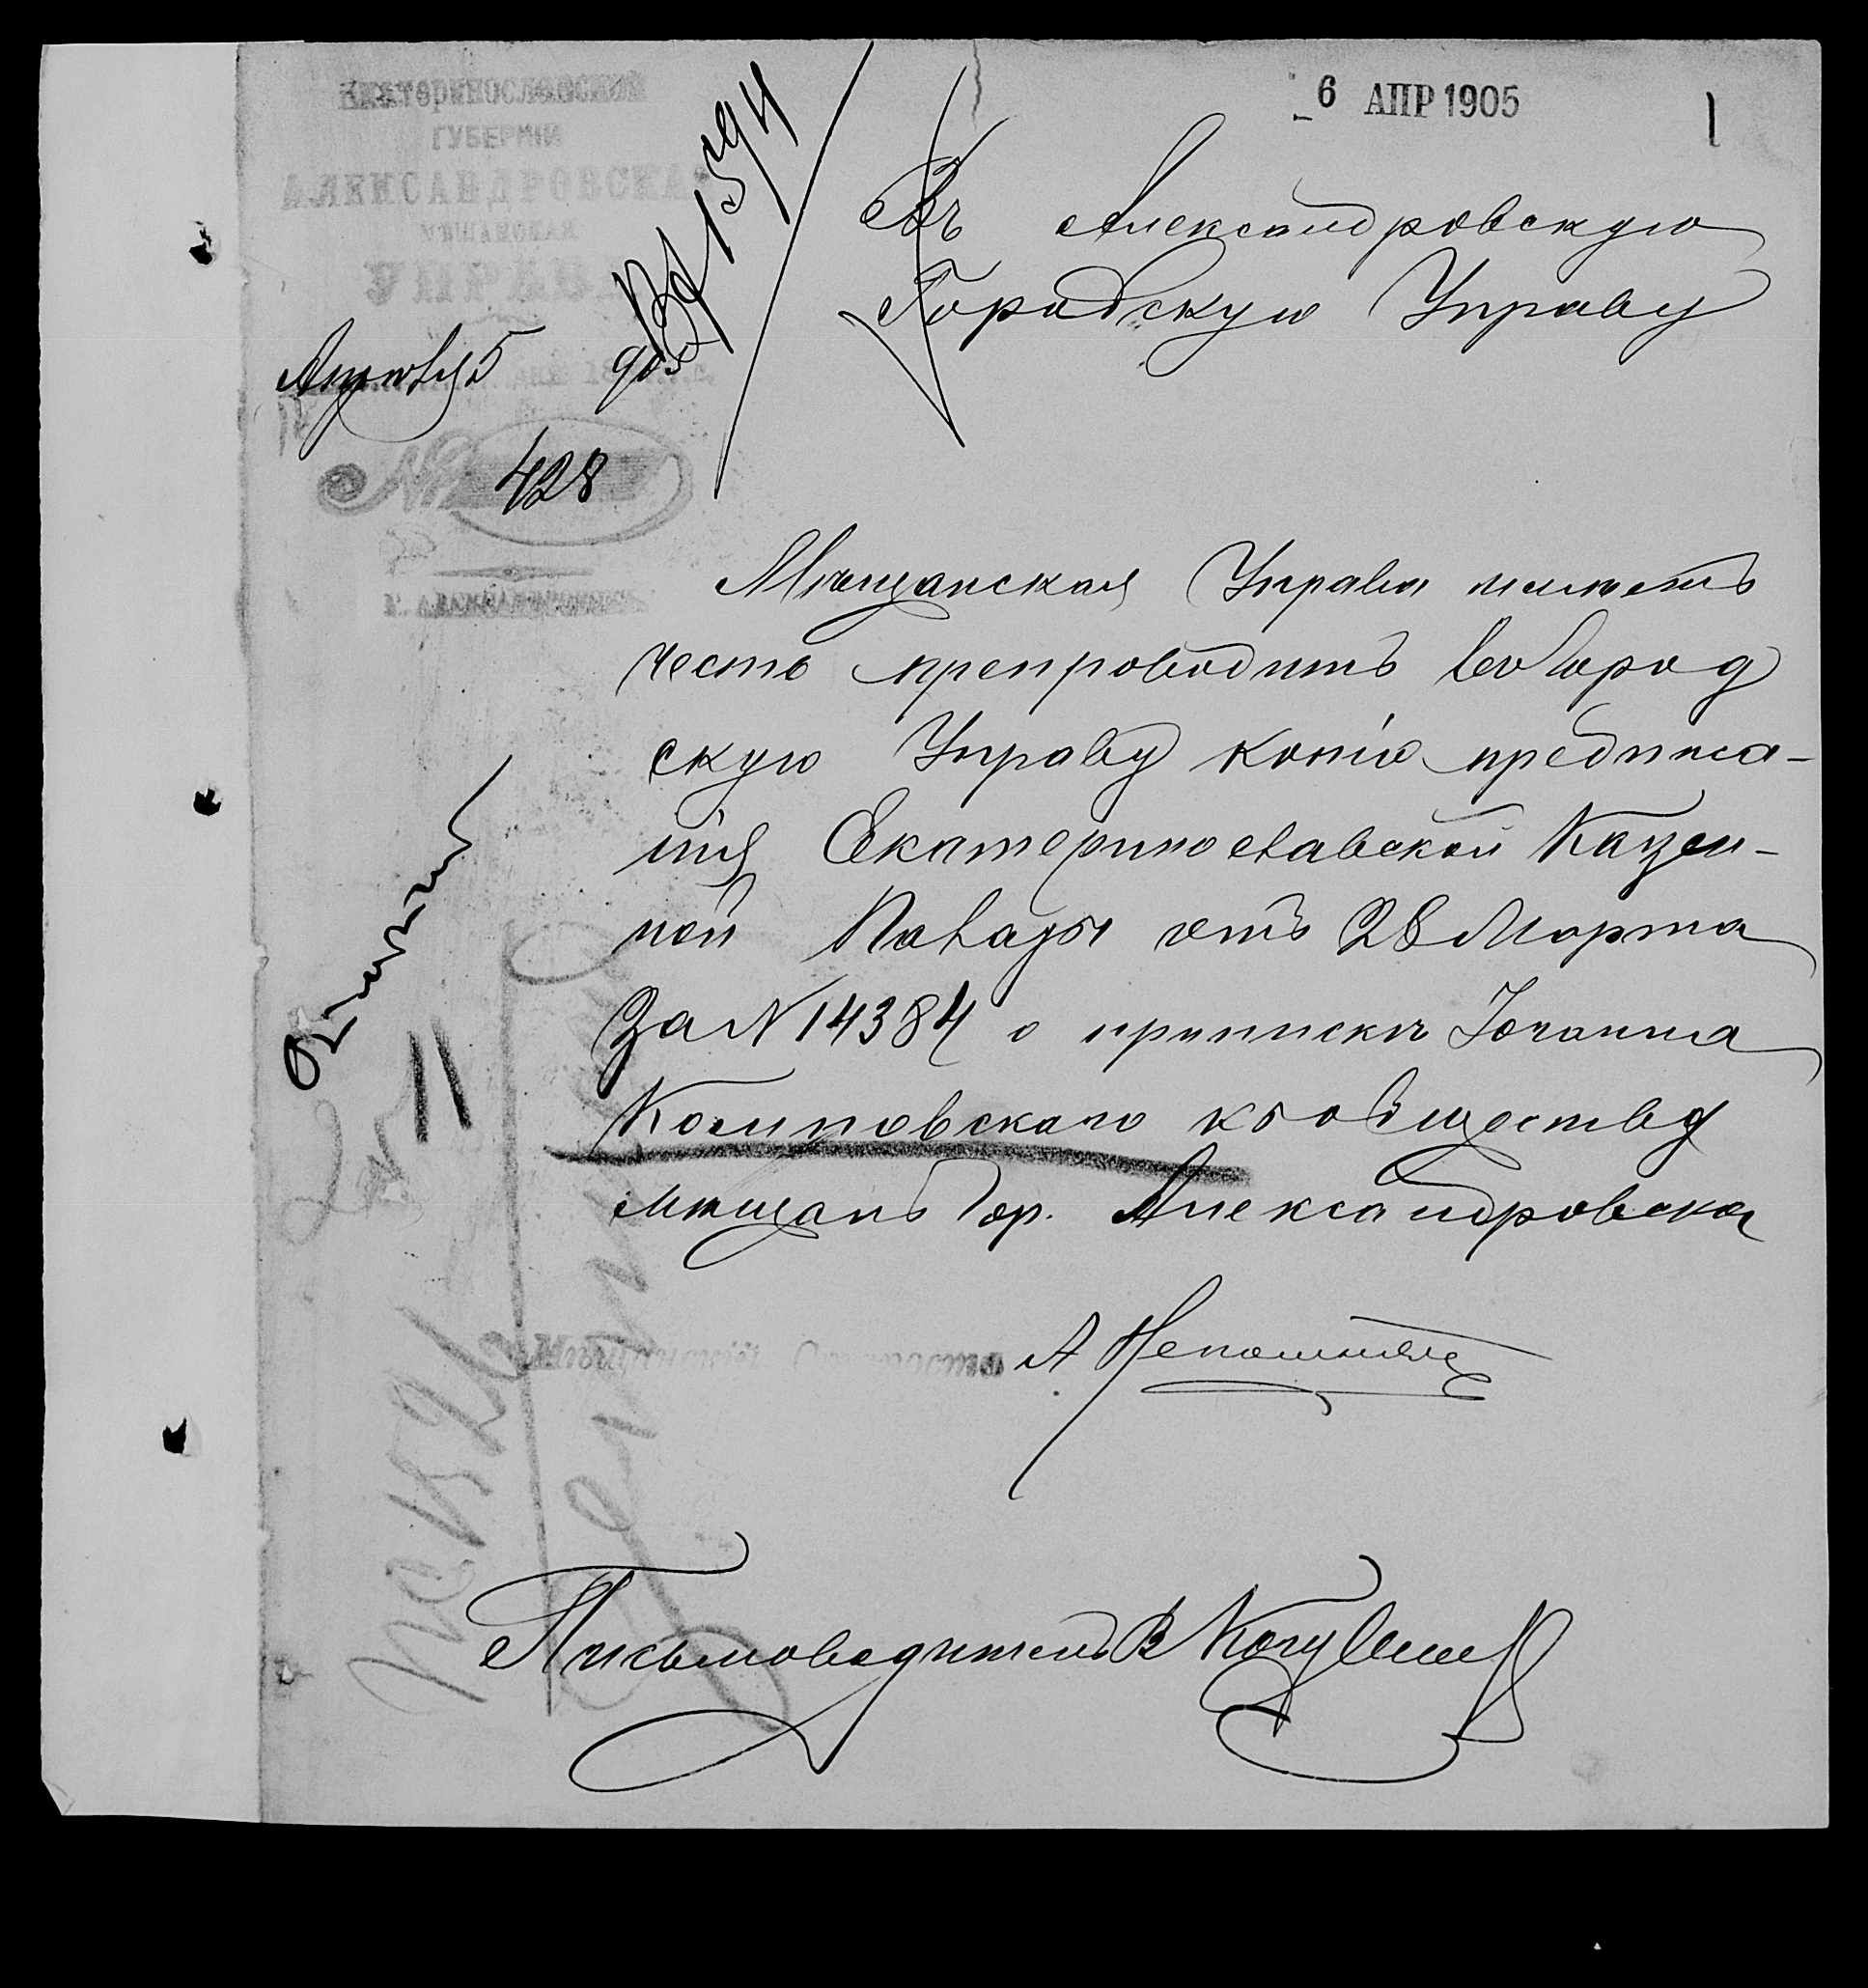 6 АПР 1905
1
Екатеринославской
ГУБЕРНІИ
АЛЕКСАНДРОВСКАЯ
МѢЩАНСКАЯ
УПРАВА
Апрѣля 5 905
№ 428
Г. АЛЕКСАНДРОВСКЪ
Вх 1594
Въ Александровскую
Городскую Управу
Мѣщанская Управа имѣетъ
честь препроводить въ Город
скую Управу копію предписа-
нія Екатеринославской Казен-
ной Палаты отъ 28 Марта
За N 14384 о припискѣ Іоганна
къ обществу
мѣщанъ Гор. Александровска
Мѣщанскій Староста А Непомнящ
Письмоводитель В
11